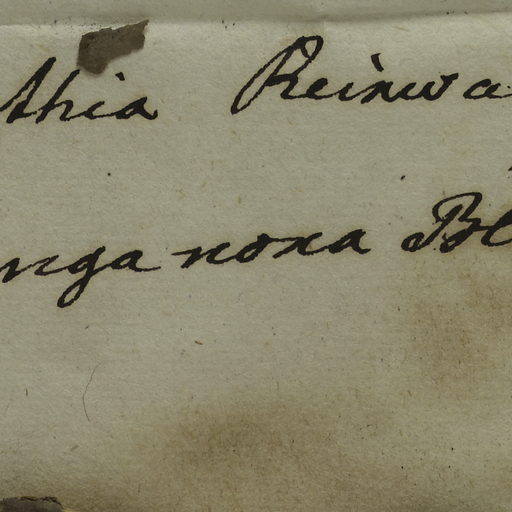 thia Reinwa
nga noxa Bl